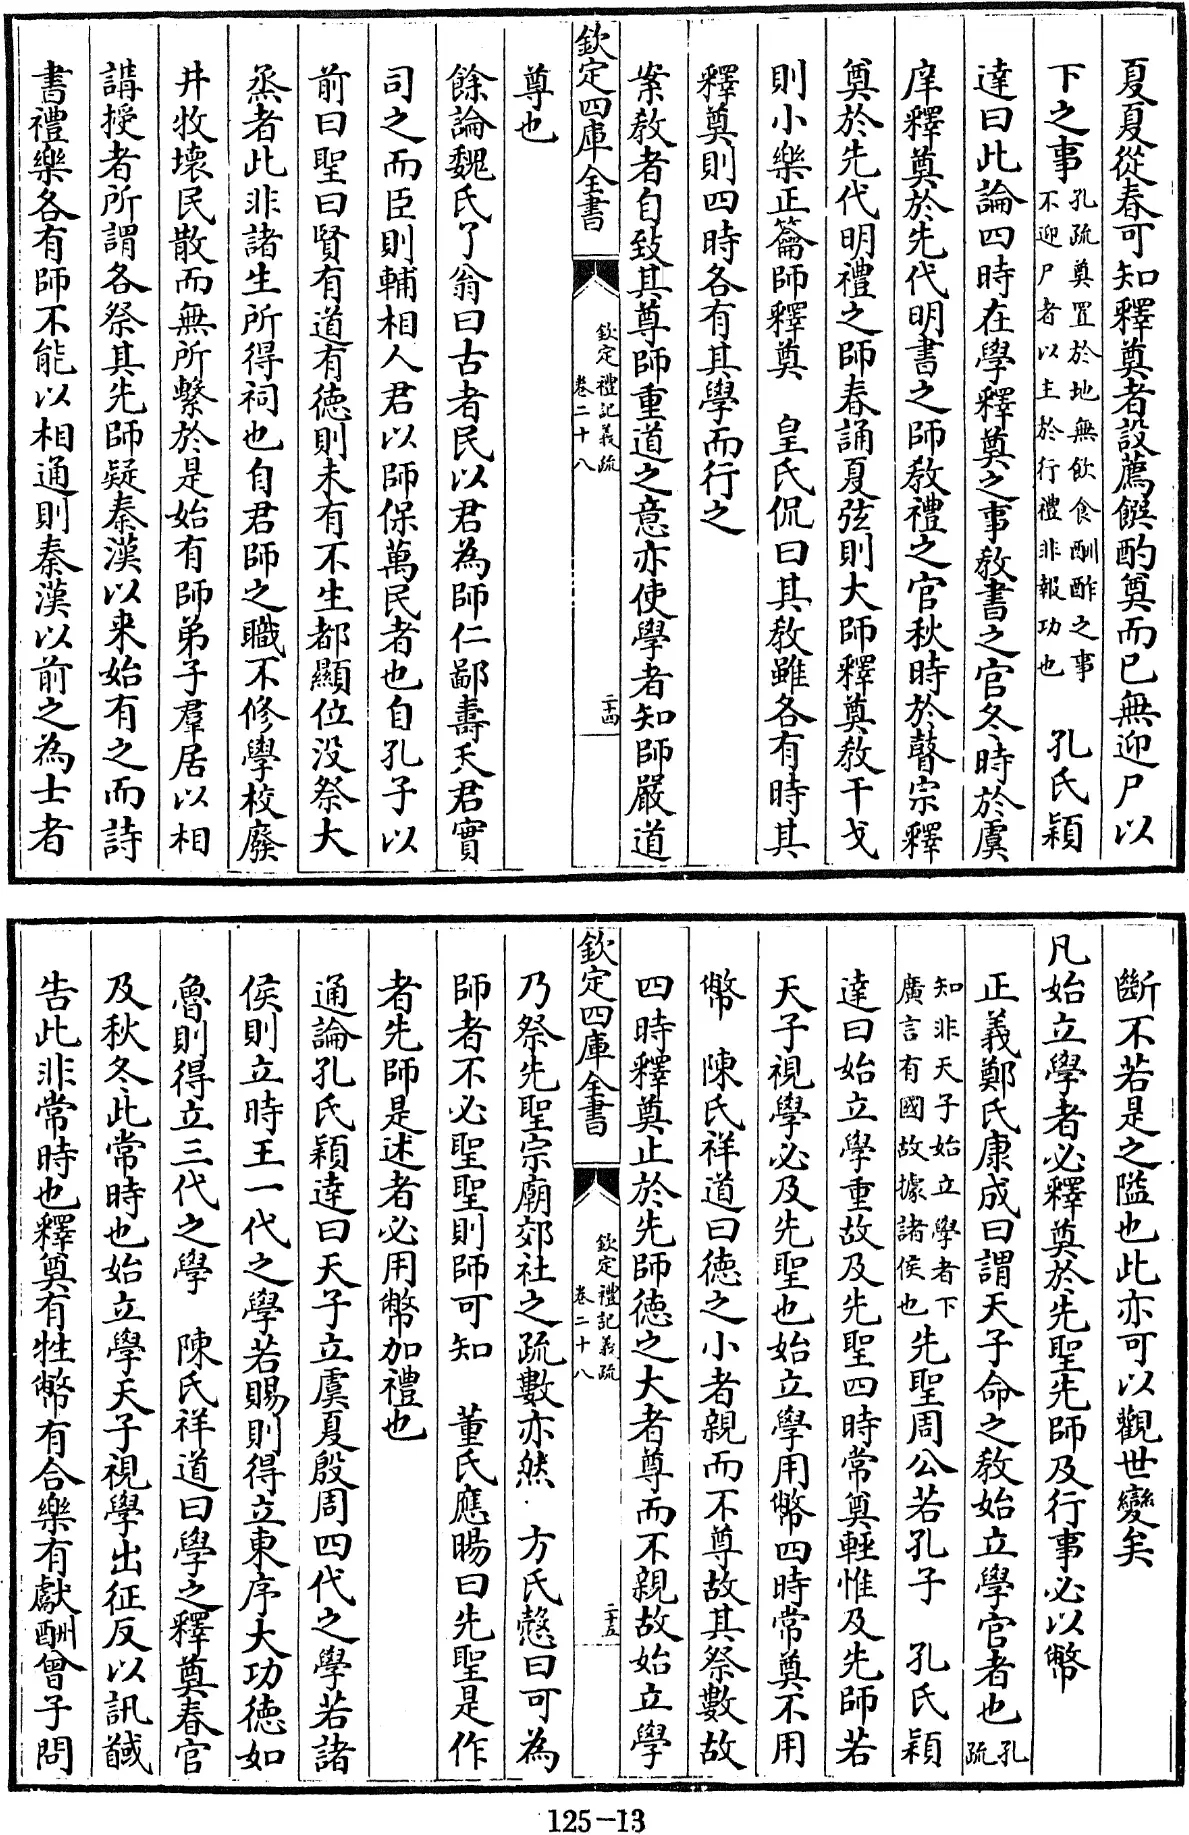 夏夏從春可知釋奠者設薦饌酌奠而已無迎尸以
下之事孔疏奠置於地無飲食酬酢之事不迎尸者以主於行禮非報功也 孔氏穎
達曰此論四時在學釋奠之事教書之官冬時於虞
庠釋奠於先代明書之師教禮之官秋時於瞽宗釋
奠於先代明禮之師春誦夏弦則大師釋奠教干戈
則小樂正籥師釋奠 皇氏侃曰其教雖各有時其
釋奠則四時各有其學而行之
案教者自致其尊師重道之意亦使學者知師嚴道
欽定四庫全書 欽定禮記義疏 卷二十八 二十四
尊也
餘論魏氏了翁曰古者民以君為師仁鄙壽夭君實
司之而臣則輔相人君以師保萬民者也自孔子以
前曰聖曰賢有道有徳則未有不生都顯位没祭大
烝者此非諸生所得祠也自君師之職不修學校廢
井牧壊民散而無所繫於是始有師弟子羣居以相
講授者所謂各祭其先師疑秦漢以来始有之而詩
書禮樂各有師不能以相通則秦漢以前之為士者
斷不若是之隘也此亦可以觀世變矣
凡始立學者必釋奠於先聖先師及行事必以幣
正義鄭氏康成曰謂天子命之教始立學官者也孔疏
知非天子始立學者下廣言有國故據諸侯也先聖周公若孔子 孔氏穎
達曰始立學重故及先聖四時常奠輕惟及先師若
天子視學必及先聖也始立學用幣四時常奠不用
幣 陳氏祥道曰徳之小者親而不尊故其祭數故
四時釋奠止於先師徳之大者尊而不親故始立學
欽定四庫全書 欽定禮記義疏 卷二十八 二十五
乃祭先聖宗廟郊社之疏數亦然 方氏慤曰可為
師者不必聖聖則師可知 董氏應暘曰先聖是作
者先師是述者必用幣加禮也
通論孔氏穎達曰天子立虞夏殷周四代之學若諸
侯則立時王一代之學若賜則得立東序大功徳如
魯則得立三代之學 陳氏祥道曰學之釋奠春官
及秋冬此常時也始立學天子視學出征反以訊馘
告此非常時也釋奠有牲幣有合樂有獻酬曾子問
125-13